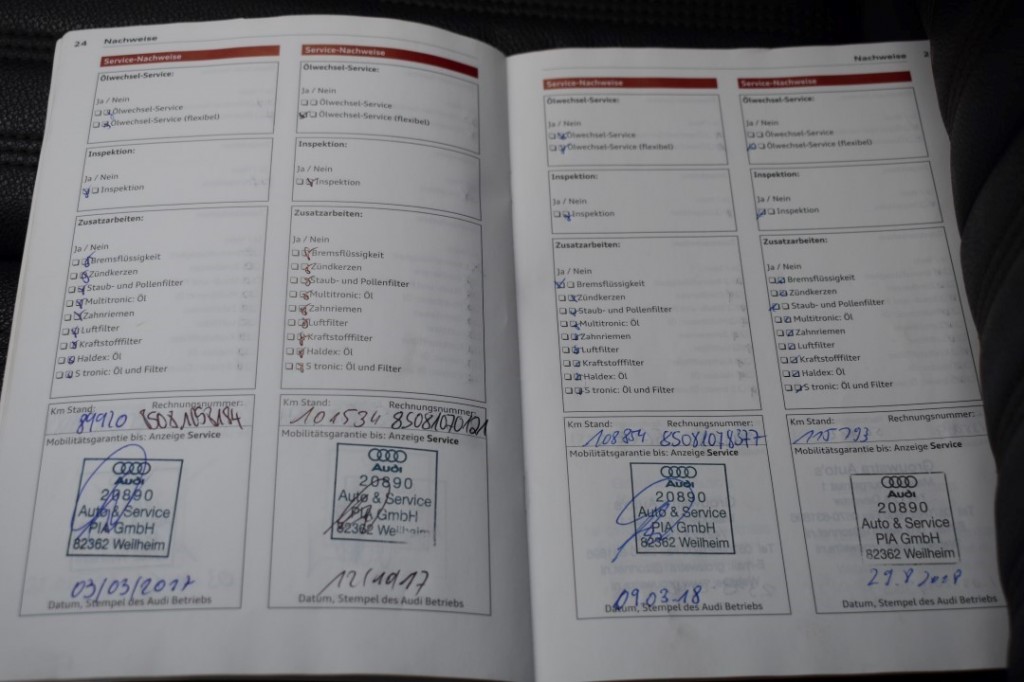 24 Nachweise
Service-Nachweise
Ölwechsel-Service:
Ja / Nein
Ölwechsel-Service
Ölwechsel-Service (flexibel)
Inspektion:
Ja / Nein
Inspektion
Zusatzarbeiten:
Ja / Nein
Bremsflüssigkeit
Zündkerzen
Staub- und Pollenfilter
Multitronic: Öl
Zahnriemen
Luftfilter
Kraftstofffilter
Haldex: Öl
S tronic: Öl und Filter
Km Stand: Rechnungsnummer:
89920
Mobilitätsgarantie bis: Anzeige Service
Audi
20890
Auto & Service
PIA GmbH
82362 Weilheim
03/03/2017
Datum, Stempel des Audi Betriebs
Service-Nachweise
Ölwechsel-Service:
Ja / Nein
Ölwechsel-Service
Ölwechsel-Service (flexibel)
Inspektion:
Ja / Nein
Inspektion
Zusatzarbeiten:
Ja / Nein
Bremsflüssigkeit
Zündkerzen
Staub- und Pollenfilter
Multitronic: Öl
Zahnriemen
Luftfilter
Kraftstofffilter
Haldex: Öl
S tronic: Öl und Filter
Km Stand: Rechnungsnummer:
101534 85081070121
Mobilitätsgarantie bis: Anzeige Service
Audi
20890
Auto & Service
PIA GmbH
82362 Weilheim
12/10/17
Datum, Stempel des Audi Betriebs
Nachweise
Service-Nachweise
Ölwechsel-Service:
Ja / Nein
Ölwechsel-Service
Ölwechsel-Service (flexibel)
Inspektion:
Ja / Nein
Inspektion
Zusatzarbeiten:
Ja / Nein
Bremsflüssigkeit
Zündkerzen
Staub- und Pollenfilter
Multitronic: Öl
Zahnriemen
Luftfilter
Kraftstofffilter
Haldex: Öl
S tronic: Öl und Filter
Km Stand: Rechnungsnummer:
108884 85081078377
Mobilitätsgarantie bis: Anzeige Service
Audi
20890
Auto & Service
PIA GmbH
82362 Weilheim
09.03.18
Datum, Stempel des Audi Betriebs
Service-Nachweise
Ölwechsel-Service:
Ja / Nein
Ölwechsel-Service
Ölwechsel-Service (flexibel)
Inspektion:
Ja / Nein
Inspektion
Zusatzarbeiten:
Ja / Nein
Bremsflüssigkeit
Zündkerzen
Staub- und Pollenfilter
Multitronic: Öl
Zahnriemen
Luftfilter
Kraftstofffilter
Haldex: Öl
S tronic: Öl und Filter
Km Stand: Rechnungsnummer:
115793
Mobilitätsgarantie bis: Anzeige Service
Audi
20890
Auto & Service
PIA GmbH
82362 Weilheim
29.8.2018
Datum, Stempel des Audi Betriebs